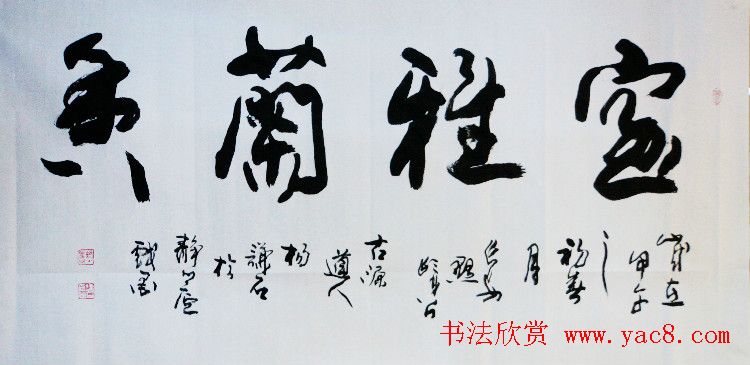 室雅蘭香
歲在
甲午
之
初春
月
古源
道人
楊
謙石
於
靜心廬
戲墨
书法欣赏 www.yac8.com